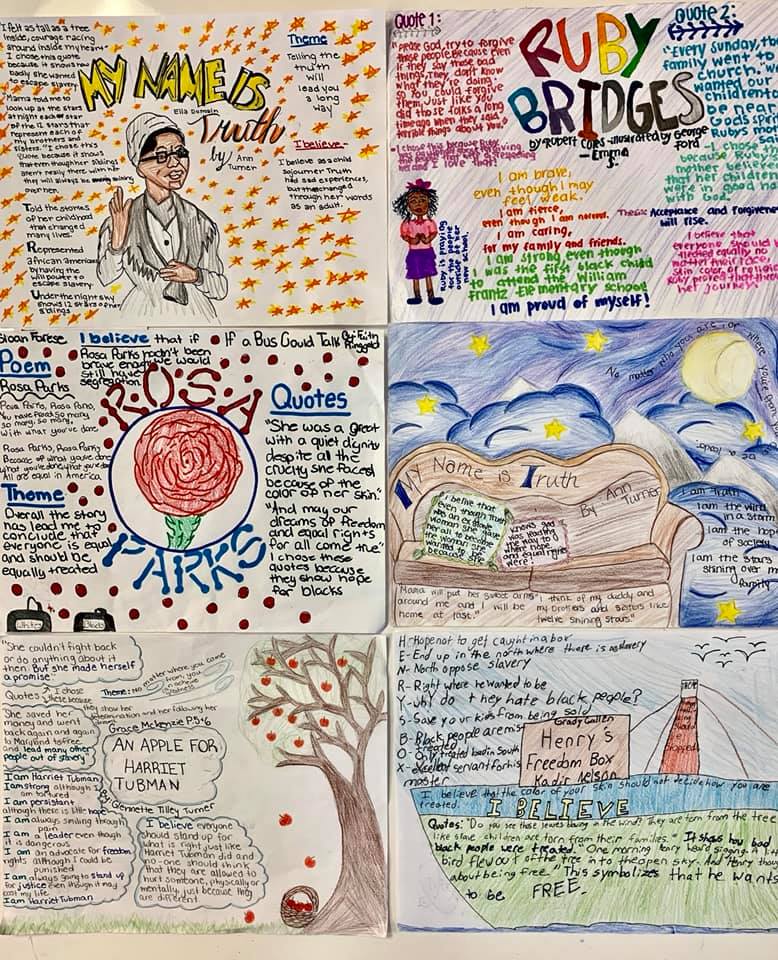 I felt as tall as a tree
inside, courage racing
around inside my heart.
I chose this quote
because it shows how
badly she wanted
to escape slavery
Mama told me to
look up at the stars
at night each star
of the 12 stars that
represent each of
my brothers and
sisters. I chose this
quote because it shows
that even though her siblings
aren't there with her
they will always be shining
over her.
Told the stories
of her childhood
that changed
many lives.
Represented
african americans
by having the
will power to
escape slavery.
Under the night sky
shows 12 stars of her
siblings
MY NAME IS
Truth
by Ann
Turner
Theme
Telling the
truth will
lead you
a long
way
I believe-
I believe as a child
Sojourner Truth
had sad experiences,
but that changed
through her words
as an adult.
Quote 1:
"Please God, try to forgive
those people. Because even
if they say those bad
things, They don't know
what they're doing.
So You could forgive
them, Just like You
did those folks a long
time ago when they said
terrible things about you."
I chose this because Ruby
and I love that!
RUBY
BRIDGES
by Robert Coles-illustrated by George
Ford
-Emma
S.
I am brave,
even though I may
feel weak.
I am fierce,
even though I am nervous.
I am caring,
for my family and friends.
I am strong even though
I was the first black child
to attend the William
Frantz Elementary school
I am proud of myself!
Ruby is praying
for the people
outside of her
new school.
Quote 2:
"Every Sunday, the
family went to
church. We
wanted our
children to
be near
God's spirit
Ruby's mom
because Ruby's
mother believed
that her children
were in good hands
with God.
Theme: Acceptance and Forgiveness
will rise.
I believe that
everyone should be
treated equally no
matter their race,
skin color, or religion
Ruby proved that there
her journey!
Sloan Farese
I believe that if
Rosa Parks hadn't been
brave enough we would
still have
segregation.
If a Bus Could Talk By: Faith
Ringgold
Poem
Rosa Parks
Rosa Parks, Rosa Parks,
You have faced so many
so many, so many,
With what you've done.
Rosa Parks, Rosa Parks
Because of what you've done
what you've done, what you've done
All are equal in America
Theme
Overall the story
has lead me to
conclude that
everyone is equal
and should be
equally treated
ROSA
PARKS
Whites
Blacks
Quotes
"She was a great
with a quiet dignity
despite all the
cruelty she faced
because of the
color of her skin."
"And may our
dreams of freedom
and equal rights
for all come true"
I chose these
quotes because
they show hope
for blacks
No matter who you are, or where you're from
be a leader.
My Name is Truth
By Ann
Turner
I belive that
even though Truth
was an ex slave
woman she gave
her all to become
the woman she
wanted to be
because she
knows god
was leading
the way to
where hope
and equal rights
were!
Mama will put her sweet arms
around me and I will be
home at last."
"I think of my daddy and
my brothers and sisters like
twelve shining stars."
I am Truth
I am the wind
in a storm
I am the hope
of society
I am the stars
shining over my
family
"She couldn't fight back
or do anything about it
then. But she made herself
a promise"
Quotes
I chose
these because
they show her
determination and her following her
Theme: No
matter where you come
from, you
can achieve
greatness
She saved her
money and went
back again and again
to Maryland to free
and lead many other
people out of slavery"
Grace McKenzie P.5+6
AN APPLE FOR
HARRIET
TUBMAN
By Glennette Tilley Turner
I am Harriet Tubman
I am strong although I
am tortured
I am persistant
although there is little hope
I am always smiling through
pain
I am a leader even though
it is dangerous
I am an advocate for freedom
rights although I could be
punished
I am always going to stand up
for justice even though it may
cost my life
I am Harriet Tubman
I believe everyone
should stand up for
what is right just like
Harriet Tubman did and
no-one should think
that they are allowed to
hurt someone, physically or
mentally, just because they
are different.
H-Hope not to get caught in a box
E-End up in the north where there is no slavery
N-North oppose slavery
R-Right where he wanted to be
Y-Why do they hate black people?
S-Save your kids from being sold
B-Black people are mis
treated
O-Only treated bad in South
X-Excellent servant for his
master
Grady Cullen
Henry's
Freedom Box
Kadir Nelson
I believe that the color of your skin should not decide how you are
treated.
I BELIEVE
Quotes: "Do you see those leaves blowing in the wind? They are torn from the tree
like slave children are torn from their families." It shows how bad
black people were treated. "One morning Henry heard singing. A little
bird flew out of the tree into the open sky. And Henry thought
about being free." This symbolizes that he wants
to be FREE.